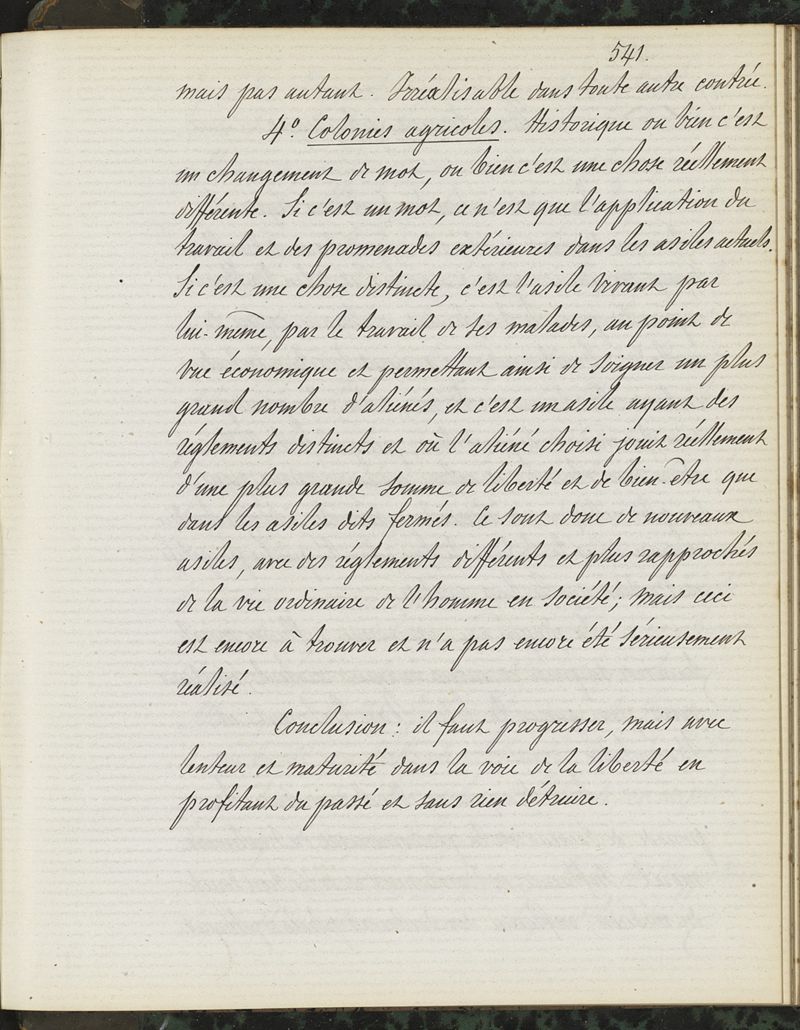 541.
mais pas autant. Irréalisable dans toute autre contrée.
4º. Colonies agricoles. Historique ou bien c'est
un changement de mot, ou bien c'est une chose réellement
différente. Si c'est un mot, ce n'est que l'application du
travail et des promenades extérieures dans les asiles actuels.
Si c'est une chose distincte, c'est l'asile vivant par
lui-même, par le travail de ses malades, au point de
vue économique et permettant ainsi de soigner un plus
grand nombre d'aliénés, et c'est un asile ayant des
réglements distincts et où l'aliéné choisi jouit réellement
d'une plus grande somme de liberté et de bien-etre que
dans les asiles dits fermés. Ce sont donc de nouveaux
asiles, avec des réglements différents et plus rapprochés
de la vie ordinaire de l'homme en société; mais ceci
est encore à trouver et n'a pas encore été sérieusement
réalisé.
Conclusion: il faut progresser, mais avec
lenteur et maturité dans la voie de la liberté en
profitant du passé et sans rien détruire.